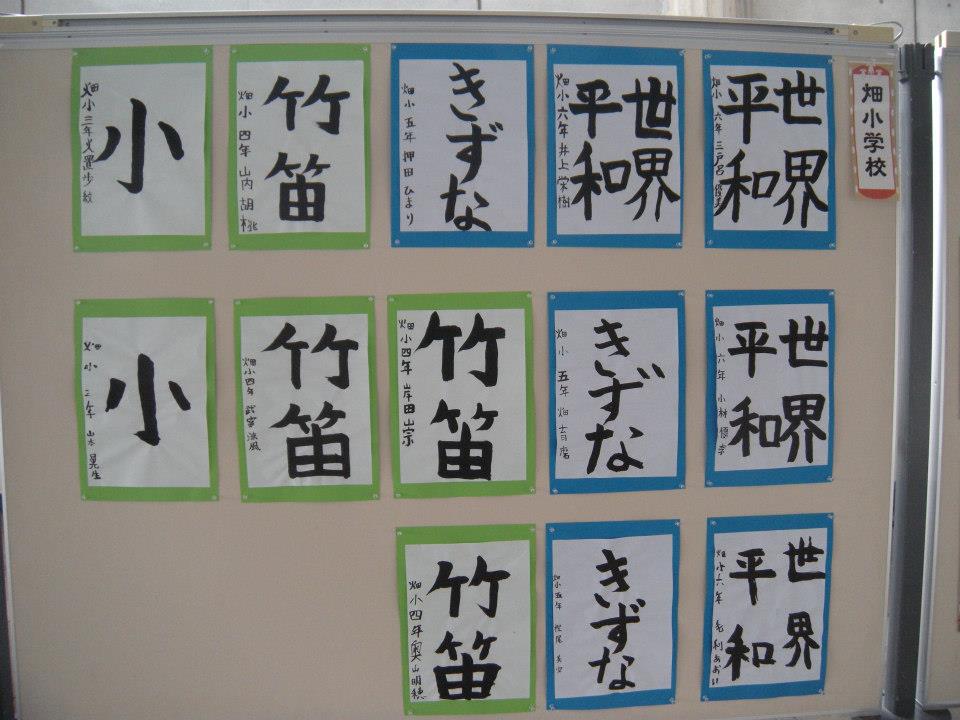 畑小学校
世界
平和
世界
平和
畑小六年 井上栄樹
きずな
畑小 五年 押田ひまり
竹笛
畑小 四年 山内胡桃
小
世界
平和
畑小 六年 小林優幸
きずな
畑小 五年
竹笛
畑小四年 岸田山宗
竹笛
畑小四年
小
畑小 三年 山本晃生
世界
平和
畑小六年 毛利あおい
きずな
畑小五年
竹笛
畑小四年 奥山明穂